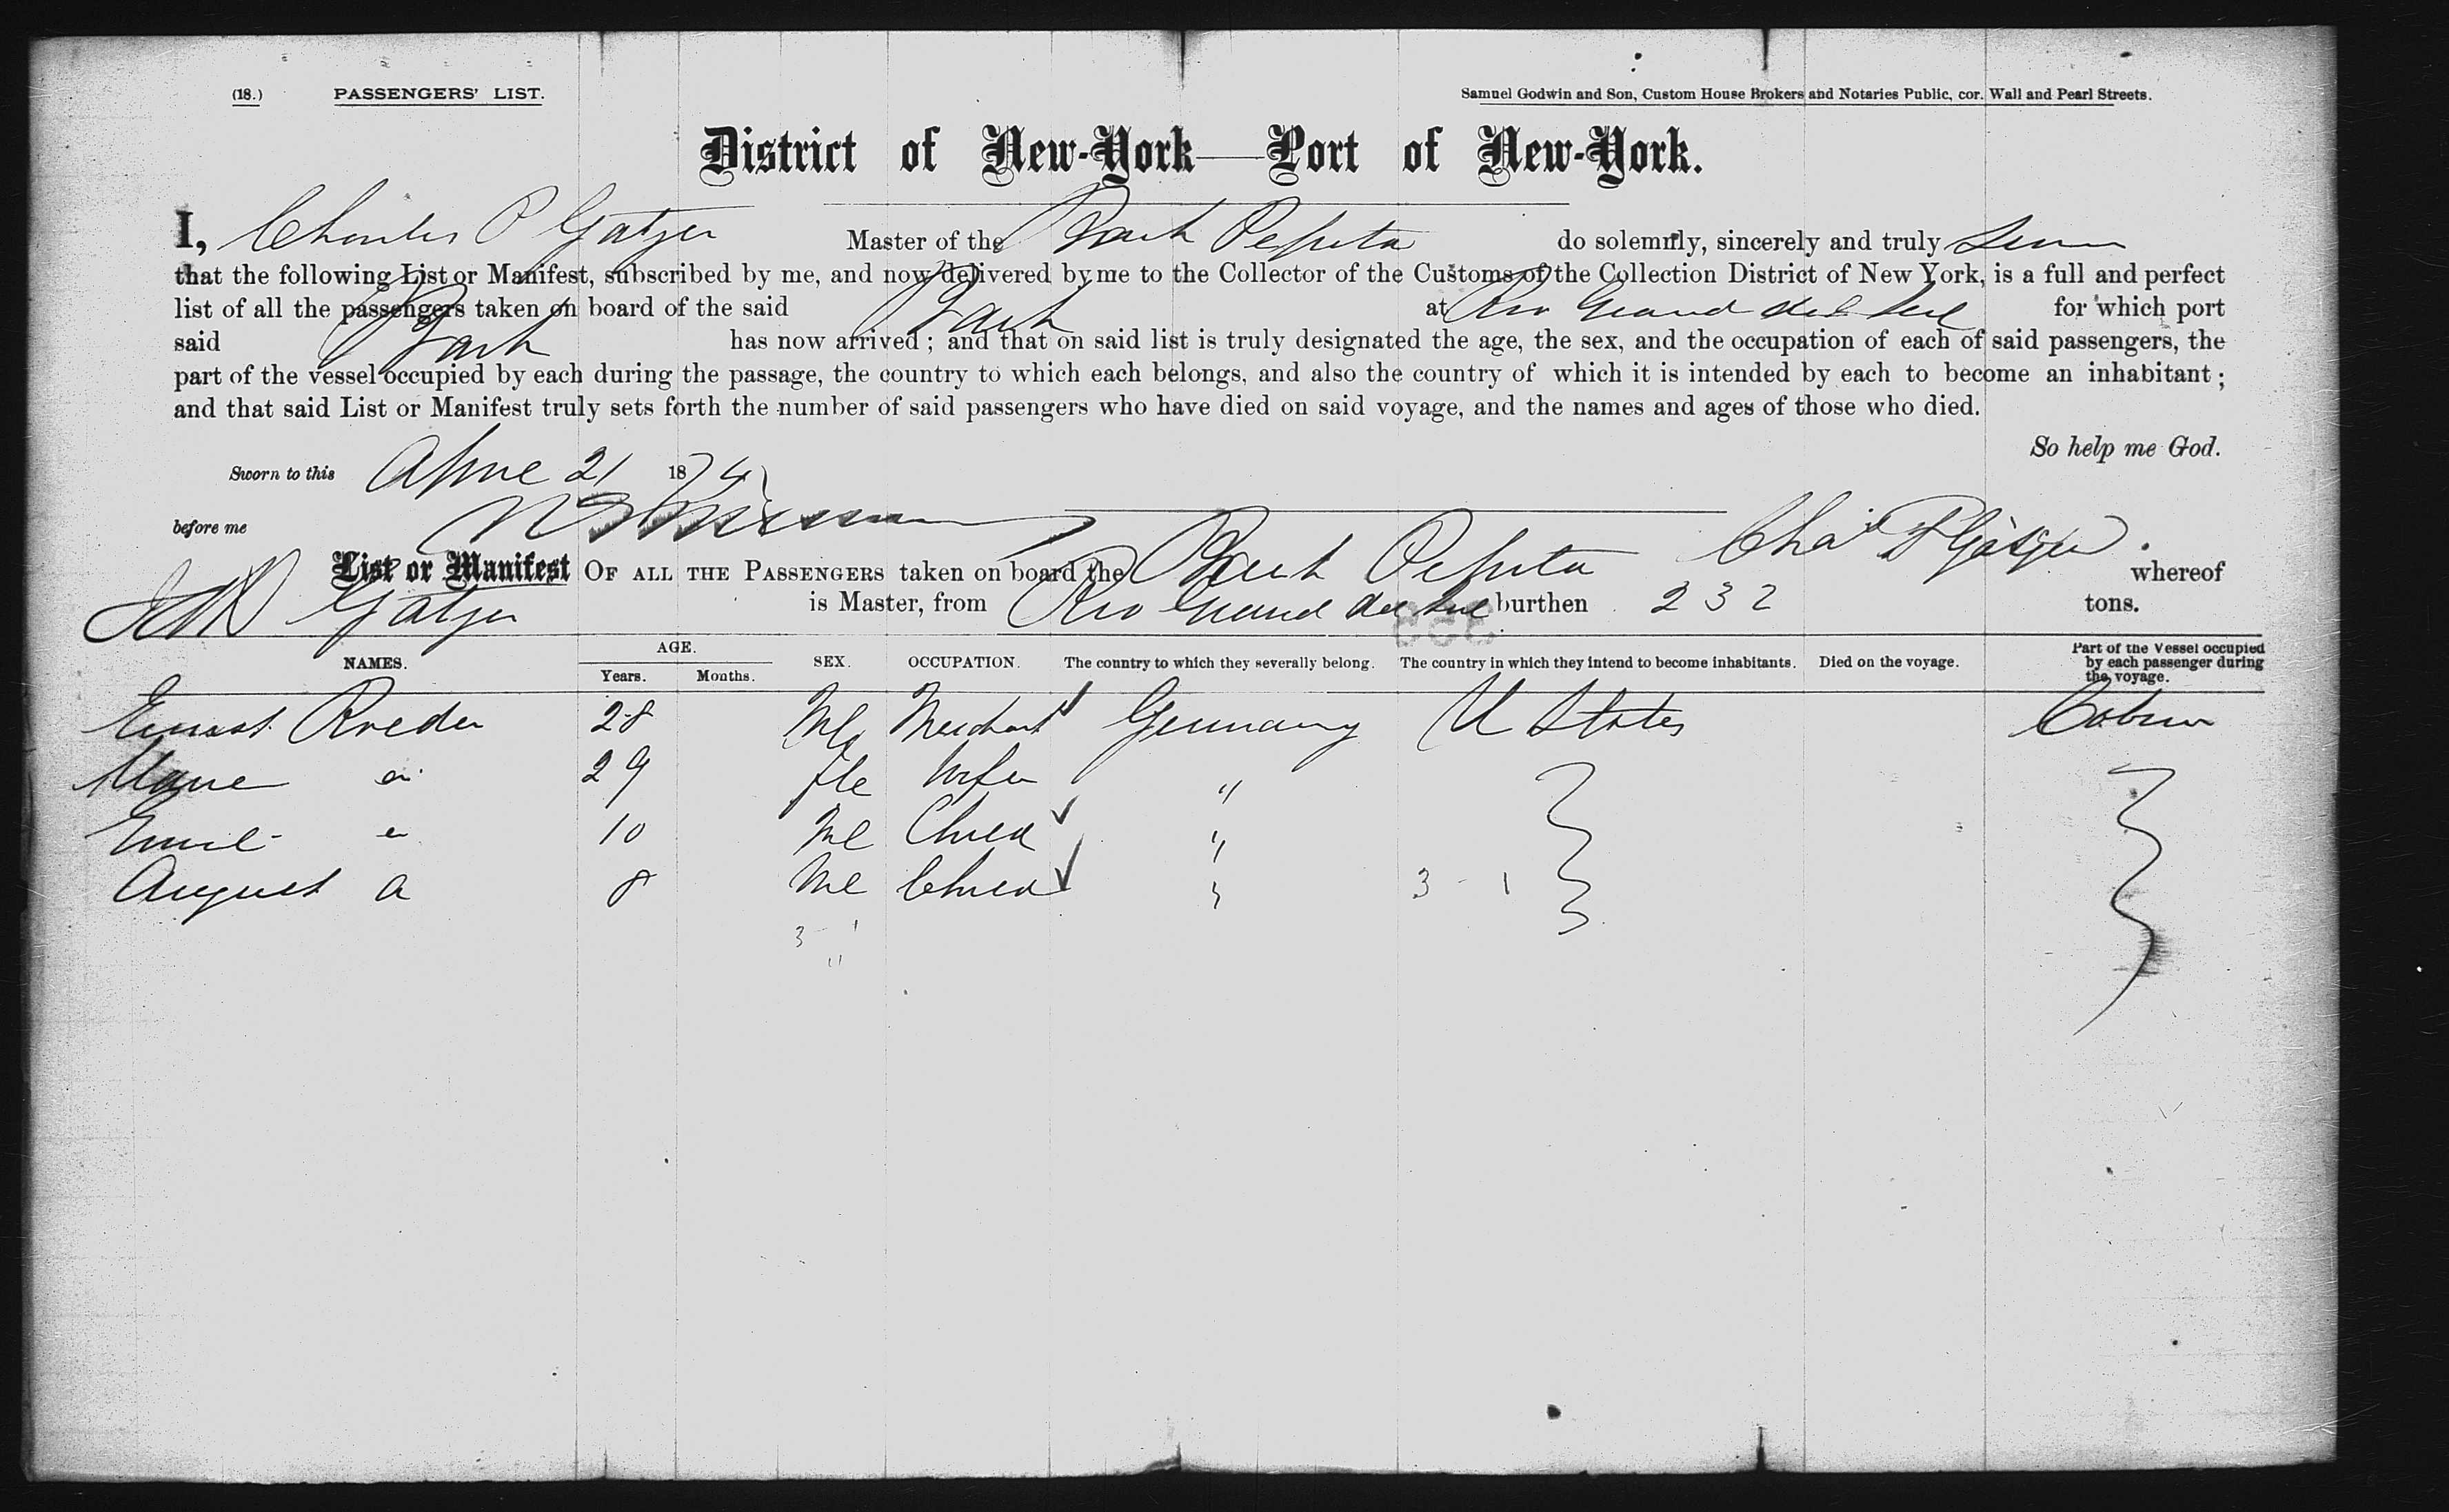 (18.) PASSENGERS' LIST. Samuel Godwin and Son, Custom House Brokers and Notaries Public, cor. Wall and Pearl Streets.
District of New-York—Port of New-York.
I, Charles P Gatzer Master of the Bark Pepita do solemnly, sincerely and truly
that the following List or Manifest, subscribed by me, and now delivered by me to the Collector of the Customs of the Collection District of New York, is a full and perfect
list of all the passengers taken on board of the said Bark at Rio Grand del Sul for which port
said Bark has now arrived; and that on said list is truly designated the age, the sex, and the occupation of each of said passengers, the
part of the vessel occupied by each during the passage, the country to which each belongs, and also the country of which it is intended by each to become an inhabitant;
and that said List or Manifest truly sets forth the number of said passengers who have died on said voyage, and the names and ages of those who died.
So help me God.
Sworn to this April 21 187
before me Chas P Gatzer.
List or Manifest OF ALL THE PASSENGERS taken on board the Bark Pepita whereof
Gatzer is Master, from Rio Grand del Sul burthen 232 tons.
NAMES. AGE. Years. Months. SEX. OCCUPATION. The country to which they severally belong. The country in which they intend to become inhabitants. Died on the voyage. Part of the Vessel occupied by each passenger during the voyage.
Ernest Roeder 28 Ml Merchant Germany U States Cabin
Marie 29 fle Wife "
Emil 10 Ml Child "
August 8 Ml Child "
3 - 1
3 - 1